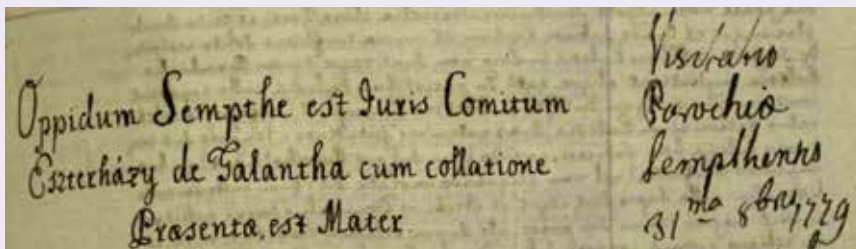 Oppidum Sempthe est Juris Comitum
Eszterházy de Galantha cum collatione
Præsenta, est Mater
Visitatio
Parochiæ
Sempthensis
31ma 8bris 1779